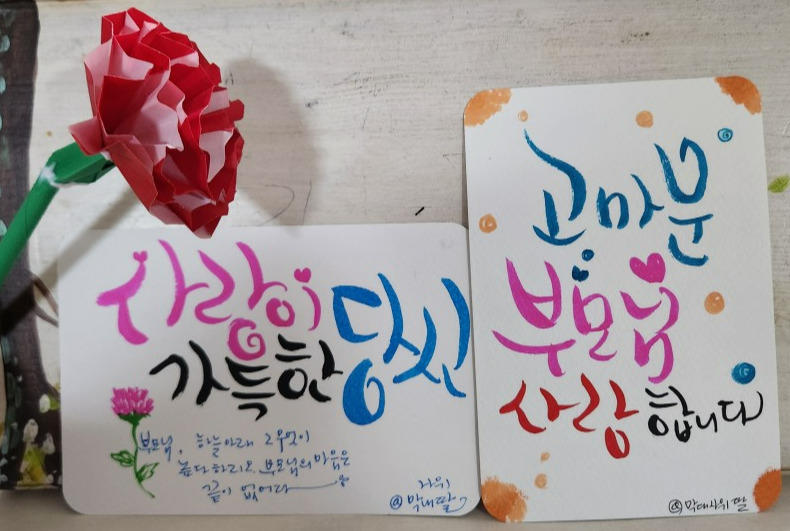 사랑이
가득한 당신
부모님, 하늘아래 그무엇이
높다하리오. 부모님의 마음은
끝이 없어라
사위
@막내딸
고마운
부모님
사랑합니다
@막내사위 딸